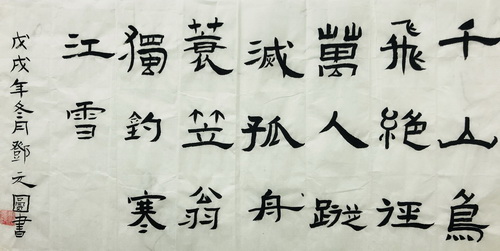 千山鳥
飛絶徑
萬人蹤
滅孤舟
蓑笠翁
獨釣寒
江雪
戊戌年冬月鄧元圖書